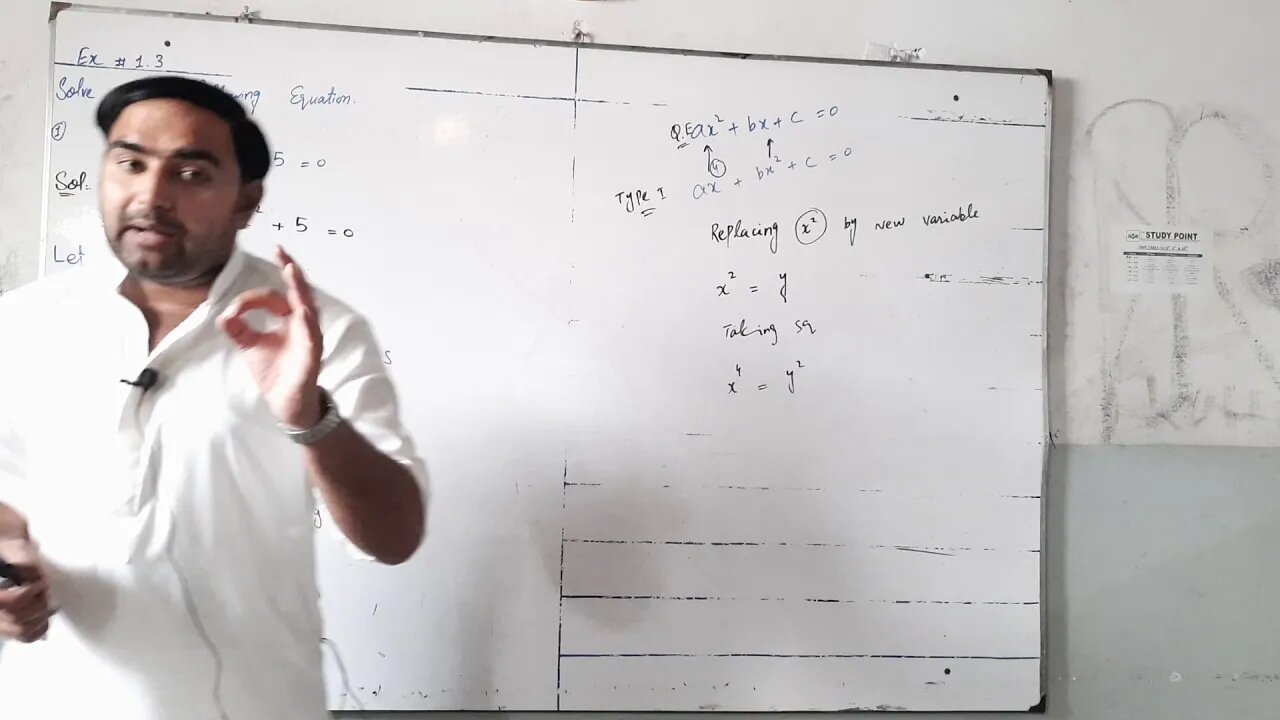 Ex # 1.3
Solve Equation.
①
5 = 0
Sol:
+ 5 = 0
Let
Q.E ax² + bx + c = 0
Type I ax⁴ + bx² + c = 0
Replacing x² by new variable
x² = y
Taking sq
x⁴ = y²
STUDY POINT